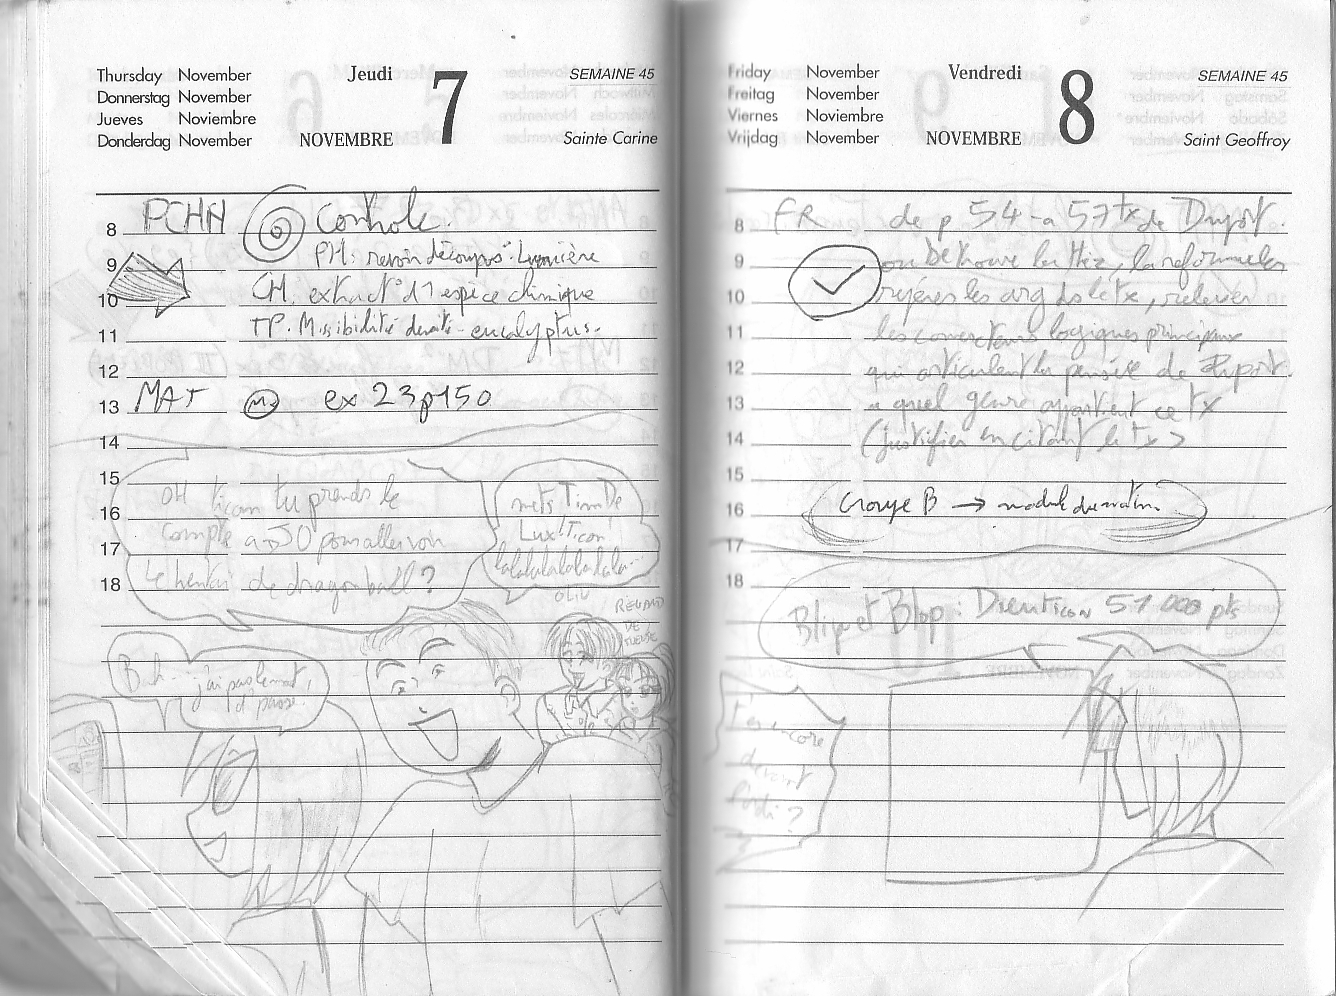 Thursday November
Donnerstag November
Jueves Noviembre
Donderdag November
Jeudi
NOVEMBRE
7
SEMAINE 45
Sainte Carine
8
PCHH
Controle.
PH: revoir décompos° Lumière
9
CH. extract° d'1 espèce chimique
10
TP. Missibilité densité - eucalyptus.
11
12
13
MAT
ex 23p150
14
15
16
17
18
OH ticon tu prends le
compte à D pour aller voir
le hentai de dragon ball?
mets Tim De
Lux Ticon!
lalalalalalalala
OLIV
RENAUD
DE
Bah...
j'ai pas le mot
d'passe.
Friday November
Freitag November
Viernes Noviembre
Vrijdag November
Vendredi
NOVEMBRE
8
SEMAINE 45
Saint Geoffroy
8
FR
de p 54 à 57 tx de Duport.
9
la reformuler
10
repères les arg ds le tx, relever
11
les connecteurs logiques principaux
12
qui articulent la pensée de Duport.
13
à quel genre appartient ce tx
14
(justifier en citant le tx)
15
16
Groupe B → module du matin.
17
18
Blip et Blop: Dieu ticon 51 000 pts
t'es encore
devant
l'ordi?